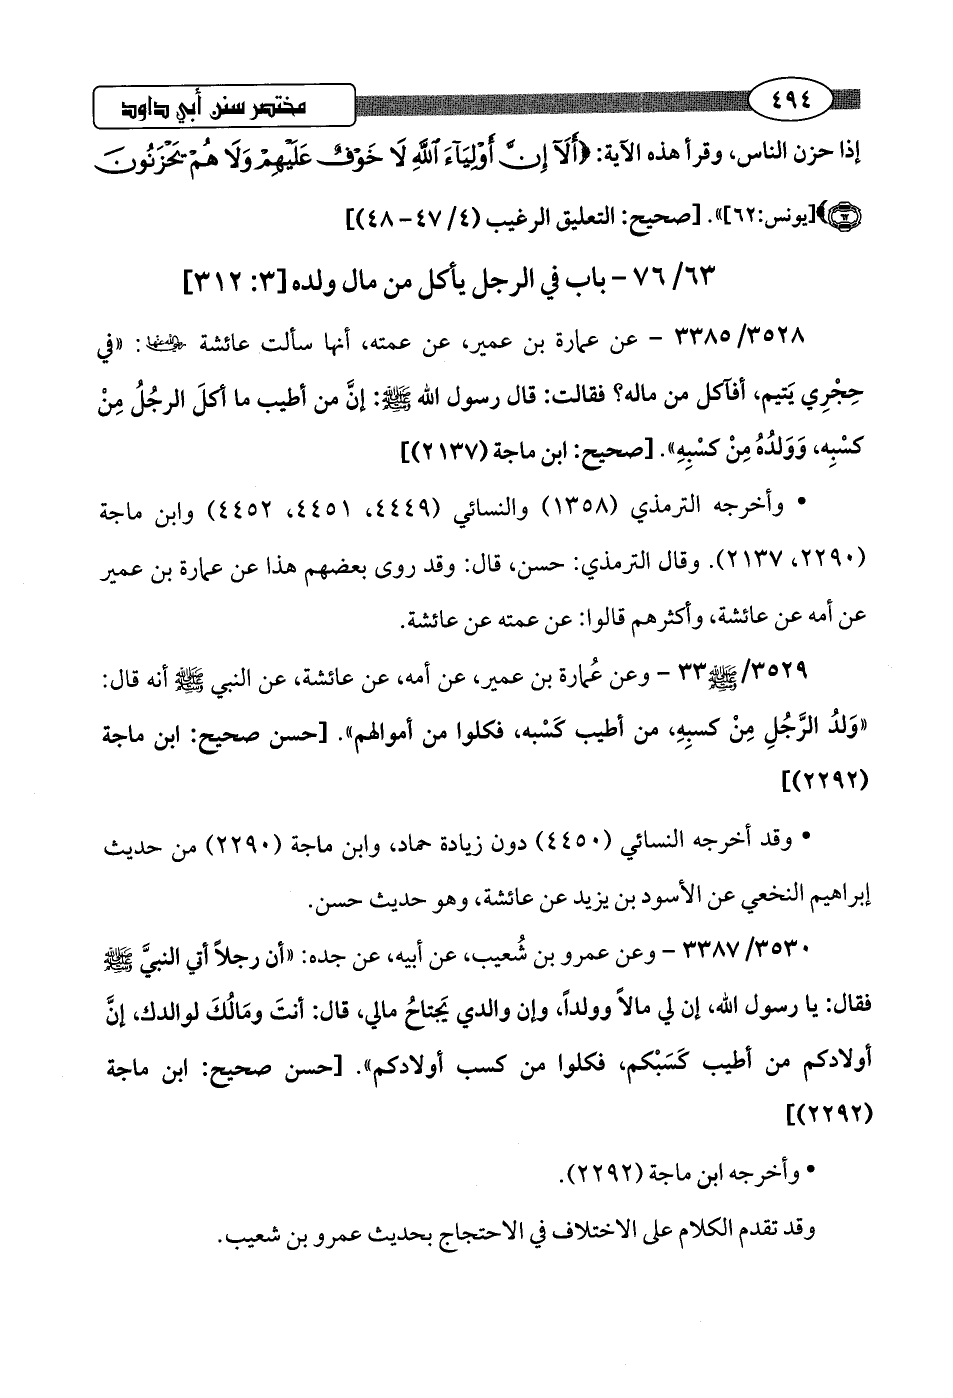 ٤٩٤ مختصر سنن أبي داود
إذا حزن الناس، وقرأ هذه الآية: ﴿أَلَآ إِنَّ أَوْلِيَآءَ ٱللَّهِ لَا خَوْفٌ عَلَيْهِمْ وَلَا هُمْ يَحْزَنُونَ
٦٢﴾[يونس:٦٢]». [صحيح: التعليق الرغيب (٤/ ٤٧- ٤٨)]
٦٣/ ٧٦ - باب في الرجل يأكل من مال ولده [٣: ٣١٢]
٣٥٢٨/ ٣٣٨٥ - عن عمارة بن عمير، عن عمته، أنها سألت عائشة رضي الله عنها: «في
حِجْرِي يَتيم، أفآكل من ماله؟ فقالت: قال رسول الله ﷺ: إنَّ من أطيب ما أكلَ الرجُلُ مِنْ
كسْبِه، وَوَلدُهُ مِنْ كسْبِهِ». [صحيح: ابن ماجة (٢١٣٧)]
• وأخرجه الترمذي (١٣٥٨) والنسائي (٤٤٤٩، ٤٤٥١، ٤٤٥٢) وابن ماجة
(٢٢٩٠، ٢١٣٧). وقال الترمذي: حسن، قال: وقد روى بعضهم هذا عن عمارة بن عمير
عن أمه عن عائشة، وأكثرهم قالوا: عن عمته عن عائشة.
٣٥٢٩/ﷺ٣٣ - وعن عُمارة بن عمير، عن أمه، عن عائشة، عن النبي ﷺ أنه قال:
«وَلدُ الرَّجُلِ مِنْ كسبِهِ، من أطيب كَسْبه، فكلوا من أموالهم». [حسن صحيح: ابن ماجة
(٢٢٩٢)]
• وقد أخرجه النسائي (٤٤٥٠) دون زيادة حماد، وابن ماجة (٢٢٩٠) من حديث
إبراهيم النخعي عن الأسود بن يزيد عن عائشة، وهو حديث حسن.
٣٥٣٠/ ٣٣٨٧ - وعن عمرو بن شُعيب، عن أبيه، عن جده: «أن رجلاً أتي النبيَّ ﷺ
فقال: يا رسول الله، إن لي مالاً وولداً، وإن والدي يَجتاحُ مالي، قال: أنتَ ومَالُكَ لوالدك، إنَّ
أولادكم من أطيب كَسَبْكم، فكلوا من كسب أولادكم». [حسن صحيح: ابن ماجة
(٢٢٩٢)]
• وأخرجه ابن ماجة (٢٢٩٢).
وقد تقدم الكلام على الاختلاف في الاحتجاج بحديث عمرو بن شعيب.